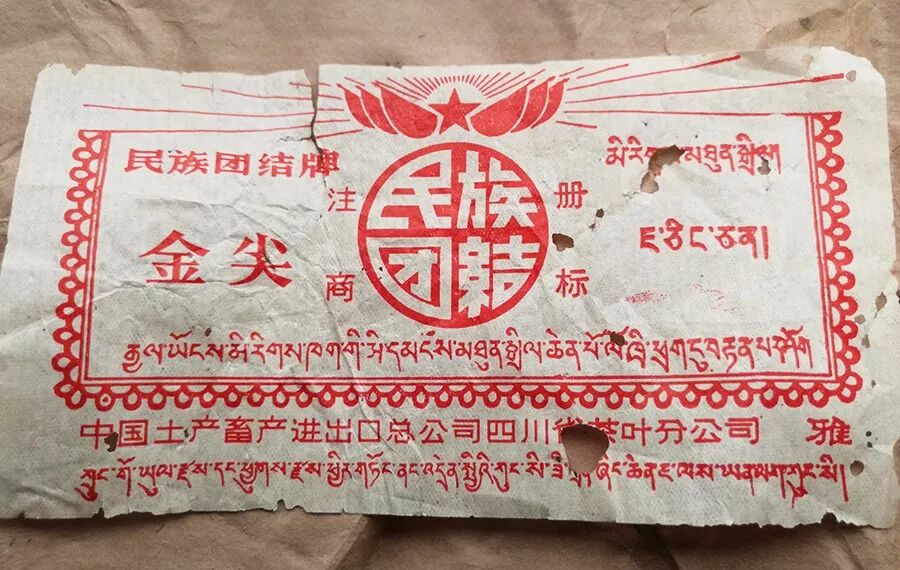 民族团结牌
金尖
注册
商标
民族
团结
མཐུན་སྒྲིལ
ཇ་ཅིང་ཅན།
རྒྱལ་ཡོངས་མི་རིགས་ཁག་གི་མི་དམངས་མཐུན་སྒྲིལ་ཆེན་པོ་ལོ་ཁྲི་ཕྲག་ཏུ་བརྟན་པར་ཤོག
中国土产畜产进出口总公司四川省茶叶分公司 雅
ཀྲུང་གོ་ཡུལ་རྫས་དང་ཕྱུགས་རྫས་ཕྱིར་གཏོང་ནང་འདྲེན་སྤྱིའི་ཀུང་སི་ཟི་ཞིང་ཆེན་ཇ་ལས་ཡན་ལག་ཀུང་སི།